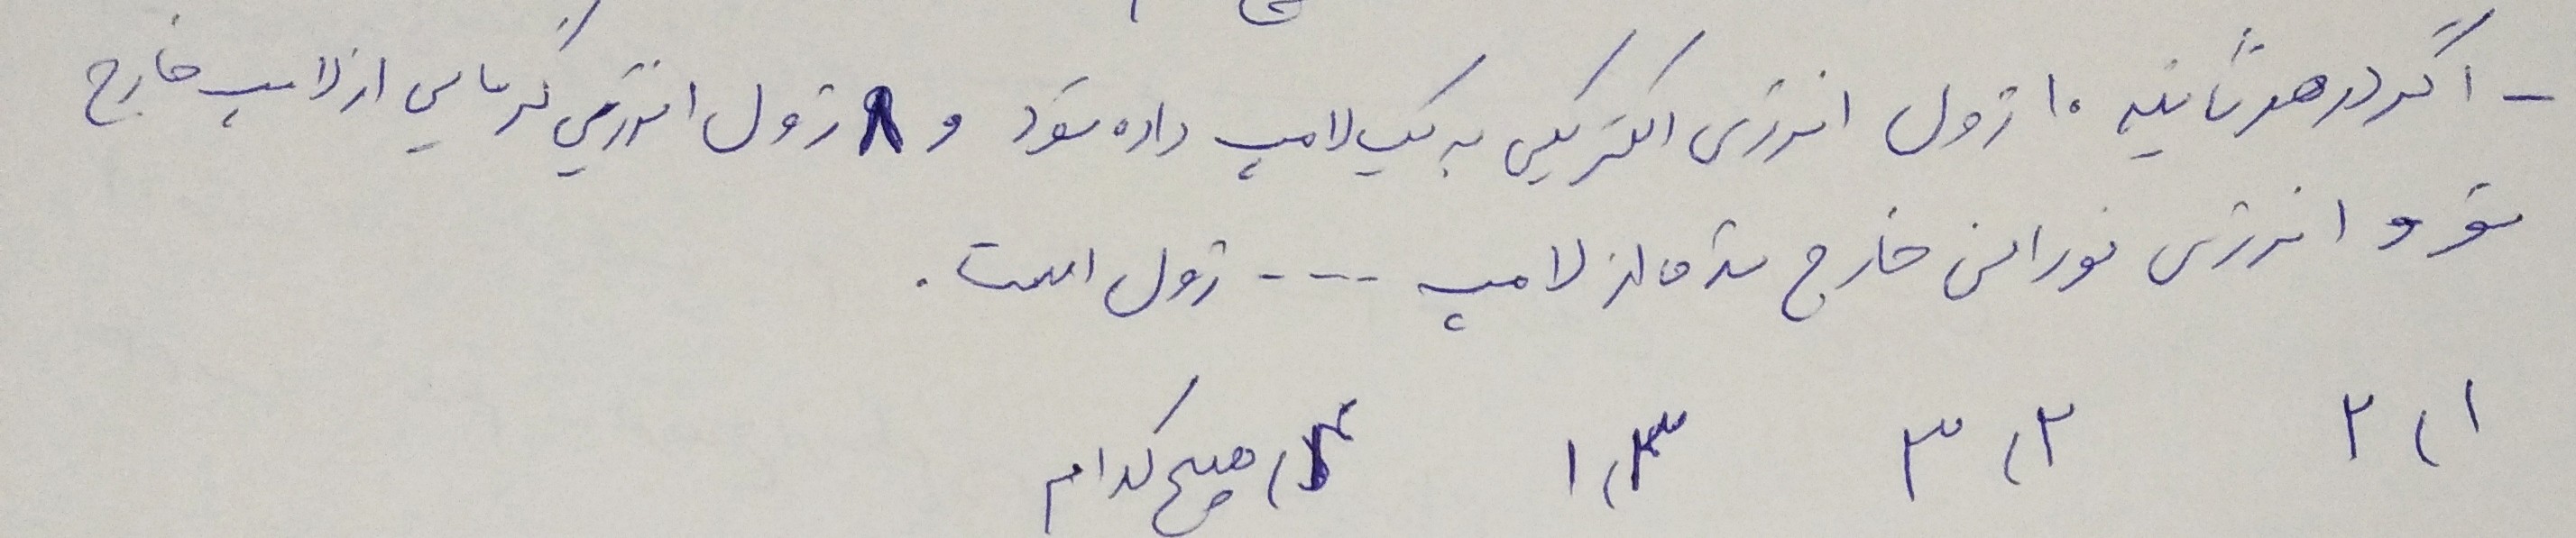 - اگر در هر ثانیه ۱۰ ژول انرژی الکتریکی به یک لامپ داده شود و ۸ ژول انرژی گرمایی از لامپ خارج
شو و انرژی نورانی خارج شده از لامپ ---- ژول است.
۱) ۲ ۲) ۳ ۳) ۱ ۴) هیچ کدام